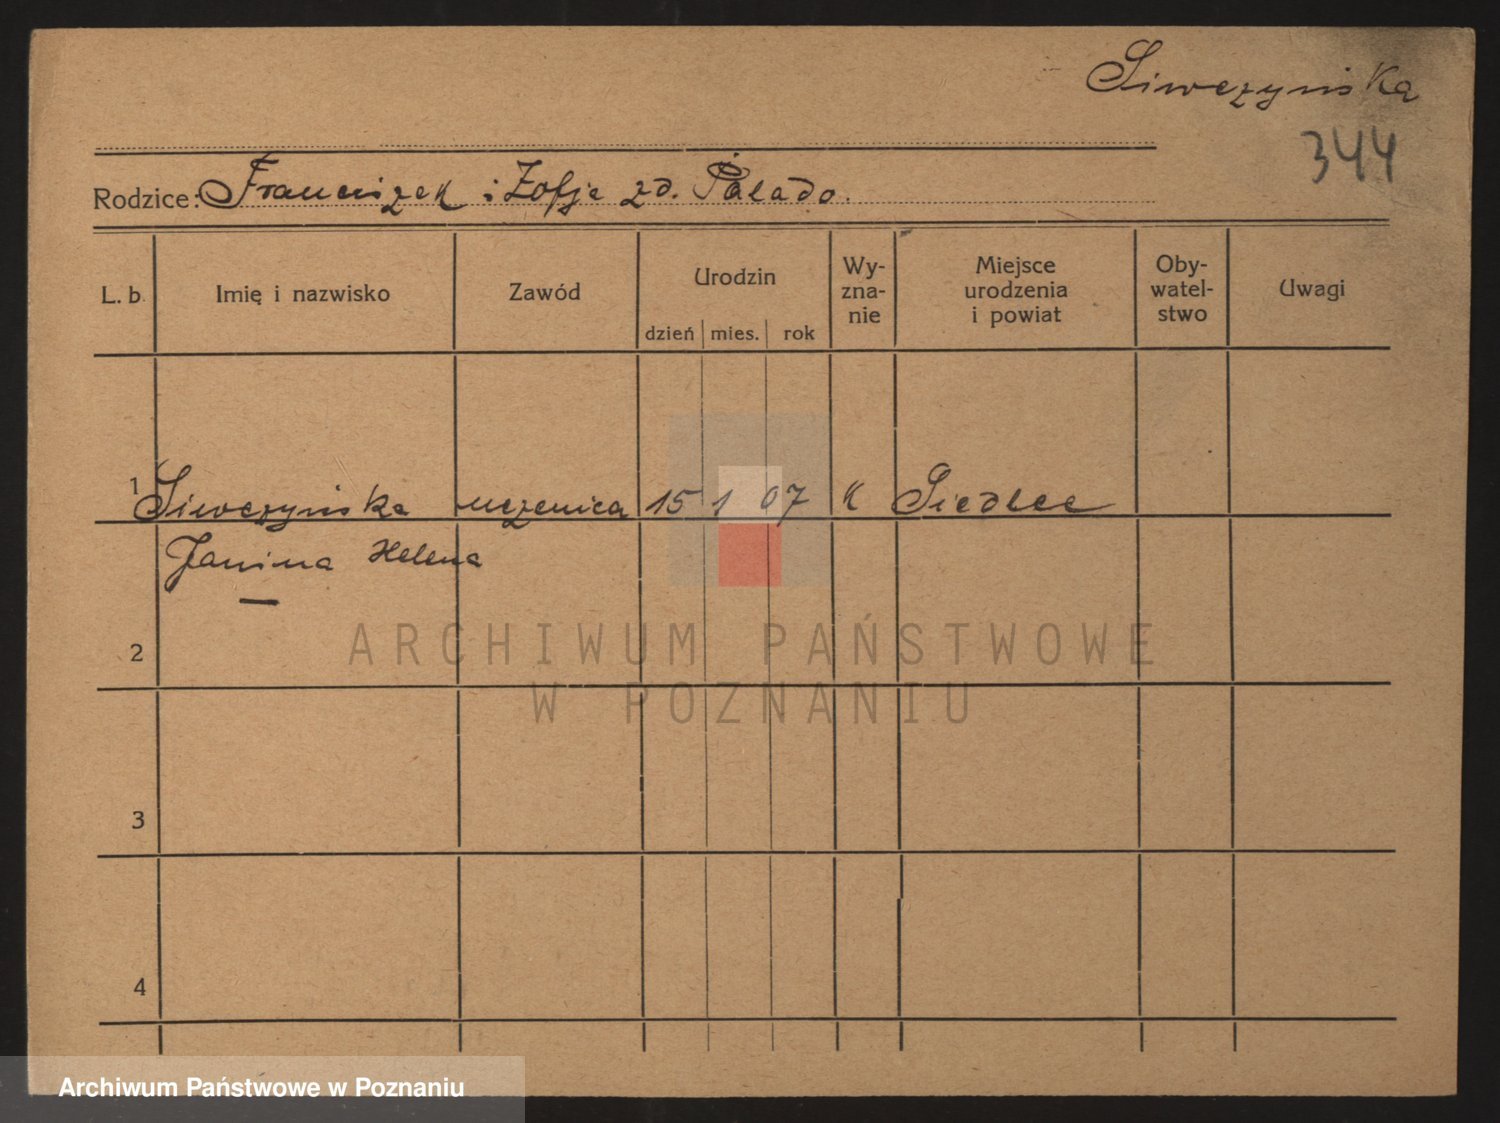 Siwczyńska
344
Rodzice: Franciszek i Zofje zd. Palado.
L. b. Imię i nazwisko Zawód Urodzin Wy-zna-nie Miejsce urodzenia i powiat Oby-watel-stwo Uwagi
dzień mies. rok
1 Siwczyńska uczenica 15 1 07 k Siedlce
Janina Helena
2
3
4
ARCHIWUM PAŃSTWOWE
W POZNANIU
Archiwum Państwowe w Poznaniu